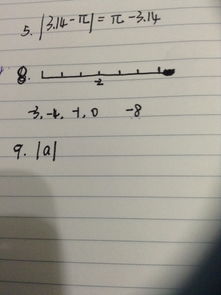 5. |3.14-π| = π-3.14
8.
-2
-3, -4, -1, 0 -8
9. |a|